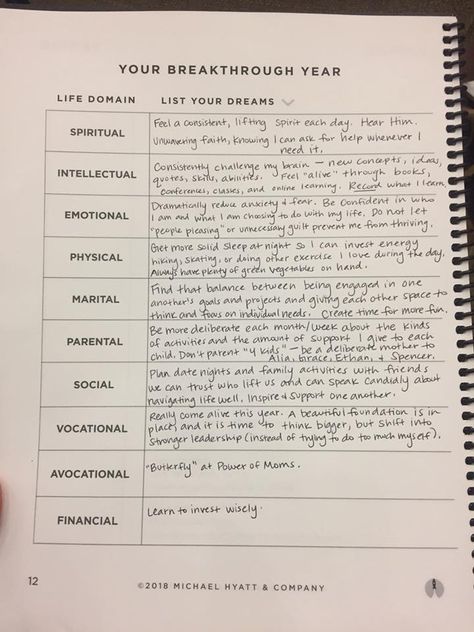 YOUR BREAKTHROUGH YEAR
LIFE DOMAIN LIST YOUR DREAMS
SPIRITUAL
Feel a consistent, lifting spirit each day. Hear Him.
Unwavering faith, knowing I can ask for help whenever I
need it.
INTELLECTUAL
Consistently challenge my brain — new concepts, ideas,
quotes, skills, abilities. Feel "alive" through books,
conferences, classes, and online learning. Record what I learn.
EMOTIONAL
Dramatically reduce anxiety & fear. Be confident in who
I am and what I am choosing to do with my life. Do not let
"people pleasing" or unnecessary guilt prevent me from thriving.
PHYSICAL
Get more solid sleep at night so I can invest energy
hiking, skating, or doing other exercise I love during the day.
Always have plenty of green vegetables on hand.
MARITAL
Find that balance between being engaged in one
another's goals and projects and giving each other space to
think and focus on individual needs. Create time for more fun.
PARENTAL
Be more deliberate each month/week about the kinds
of activities and the amount of support I give to each
child. Don't parent "4 kids" — be a deliberate mother to
Alia, Grace, Ethan, & Spencer.
SOCIAL
Plan date nights and family activities with friends
we can trust who lift us and can speak candidly about
navigating life well. Inspire & support one another.
VOCATIONAL
Really come alive this year. A beautiful foundation is in
place, and it is time to think bigger, but shift into
stronger leadership (instead of trying to do too much myself).
AVOCATIONAL
"Butterfly" at Power of Moms.
FINANCIAL
Learn to invest wisely.
12
©2018 MICHAEL HYATT & COMPANY